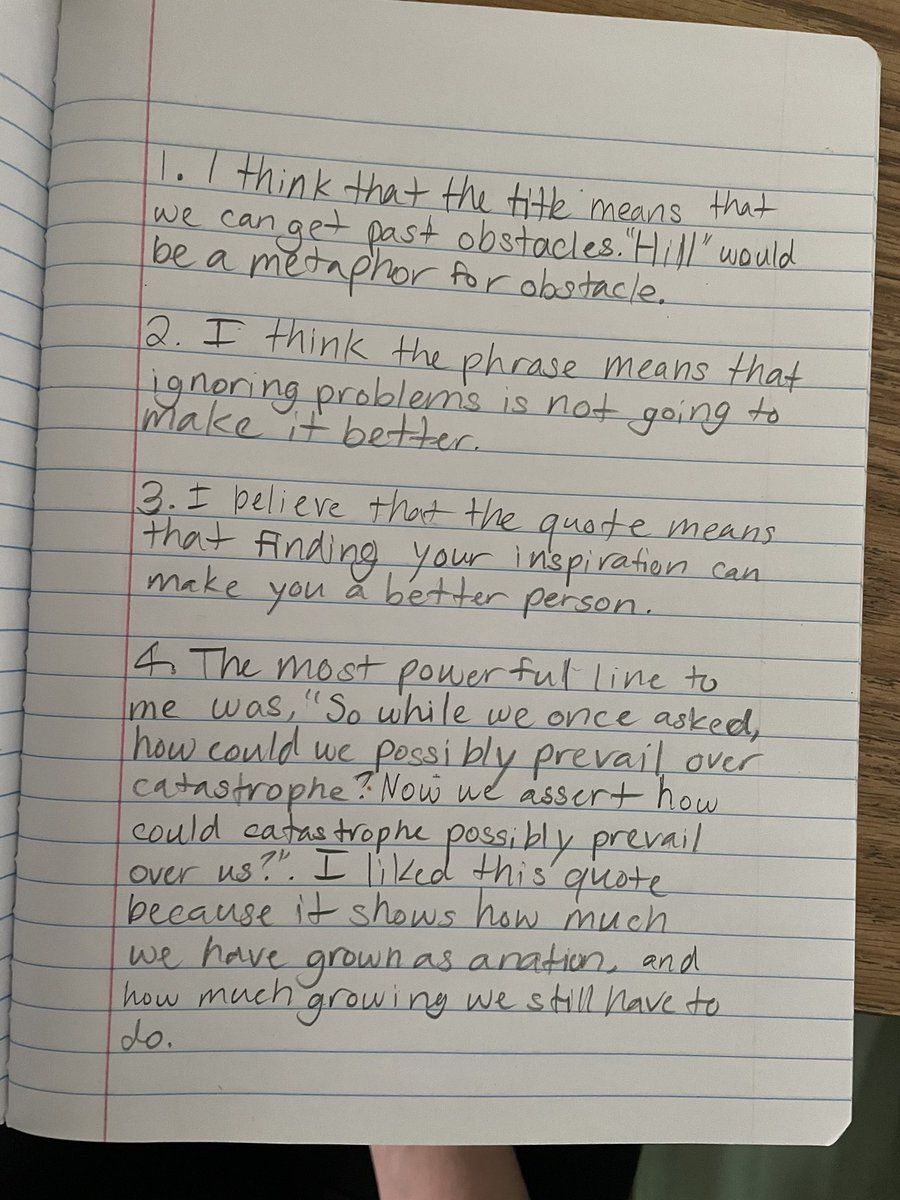 1. I think that the title means that
we can get past obstacles. "Hill" would
be a metaphor for obstacle.
2. I think the phrase means that
ignoring problems is not going to
make it better.
3. I believe that the quote means
that finding your inspiration can
make you a better person.
4. The most powerful line to
me was, "So while we once asked,
how could we possibly prevail over
catastrophe? Now we assert how
could catastrophe possibly prevail
over us?". I liked this quote
because it shows how much
we have grown as a nation, and
how much growing we still have to
do.